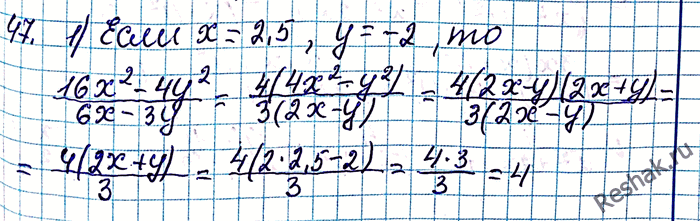 47. 1) Если x = 2,5, y = -2, то
(16x² - 4y²)/(6x - 3y) = 4(4x² - y²)/3(2x - y) = 4(2x - y)(2x + y)/3(2x - y) =
= 4(2x + y)/3 = 4(2·2,5 - 2)/3 = 4·3/3 = 4
Reshak.ru